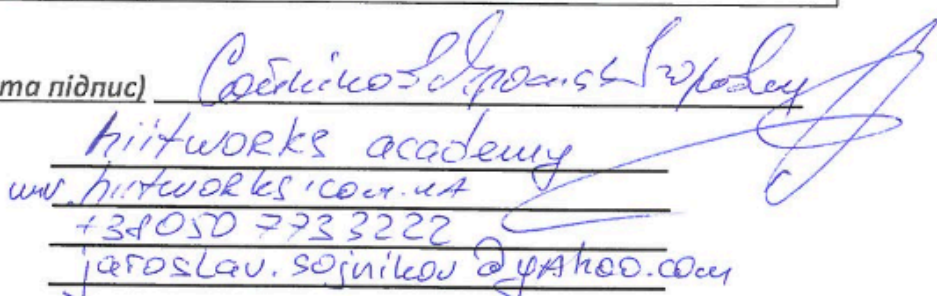 та підпис) Сойніков Ярослав Ігорович
hiitworks academy
www.hiitworks.com.ua
+38050 7733222
jaroslav.sojnikov@yahoo.com